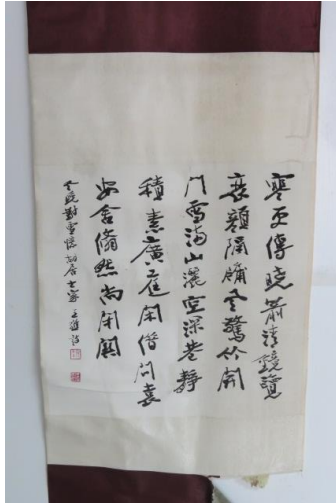 寒更傳曉箭清鏡覽
衰顏隔牖風驚竹開
門雪滿山灑空深巷靜
積素廣庭閑借問袁
安舍翛然尚閉關
冬晚對雪憶胡居士家 王維詩